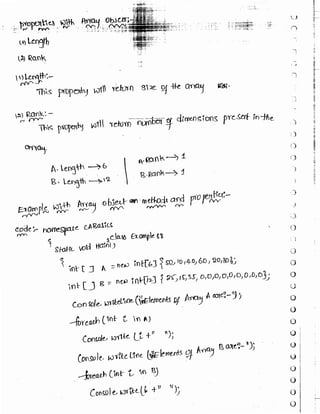 properties with Array Object:-
(1) Length
(2) Rank
(1) Length:-
This property will return size of the array
(2) Rank:-
This property will return number of dimensions present in the
array.
A.Length → 6
B.Length → 12
A.Rank → 1
B.Rank → 1
Example with Array object methods and properties:-
code:- namespace CABasics
{ class Example 12
static void Main()
{
int [ ] A = new int[6] { 50, 10, 40, 60, 20, 30 };
int [ ] B = new int[12] { 25, 15, 35, 0,0,0,0,0,0,0,0,0};
Console.WriteLine("Elements of Array A are:-");
foreach (int i in A)
Console.Write (i + " ");
Console.WriteLine ("Elements of Array B are:- ");
foreach (int i in B)
Console.Write(i + " ");